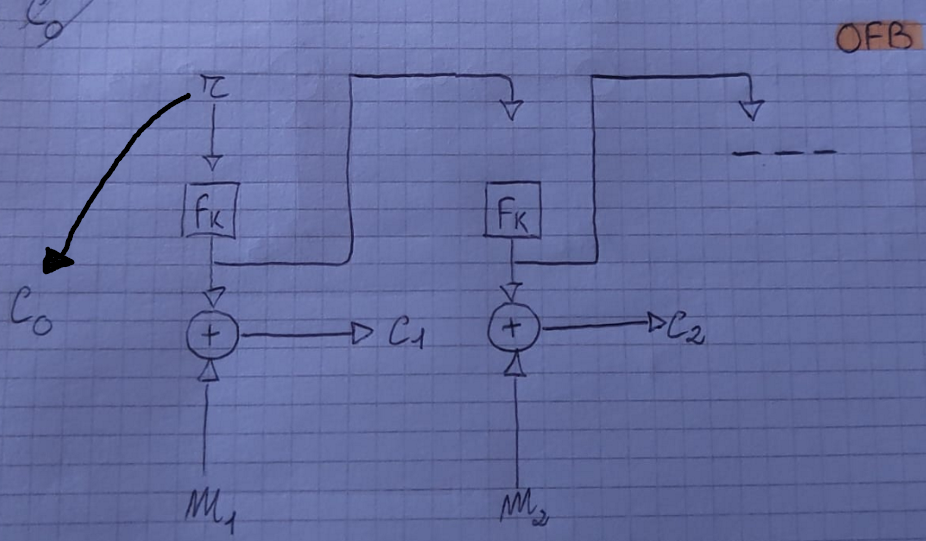 C0
OFB
r
FK
FK
C0
+
C1
+
C2
m1
m2